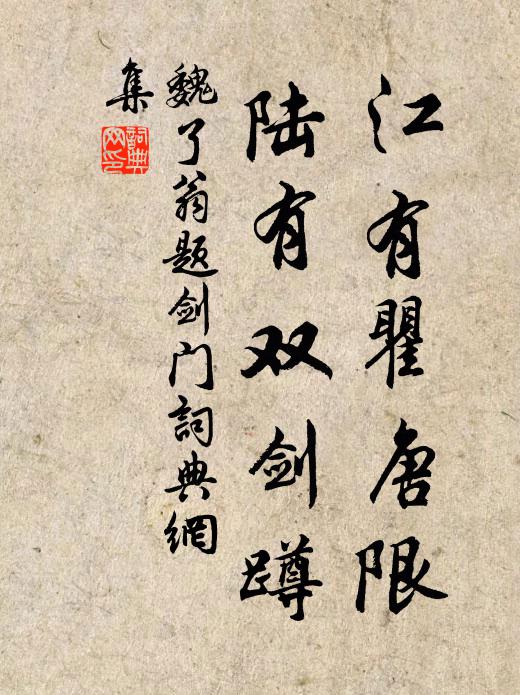 江有瞿唐限
陆有双剑蹲
魏了翁题剑门詞典網
集
詞典
网印